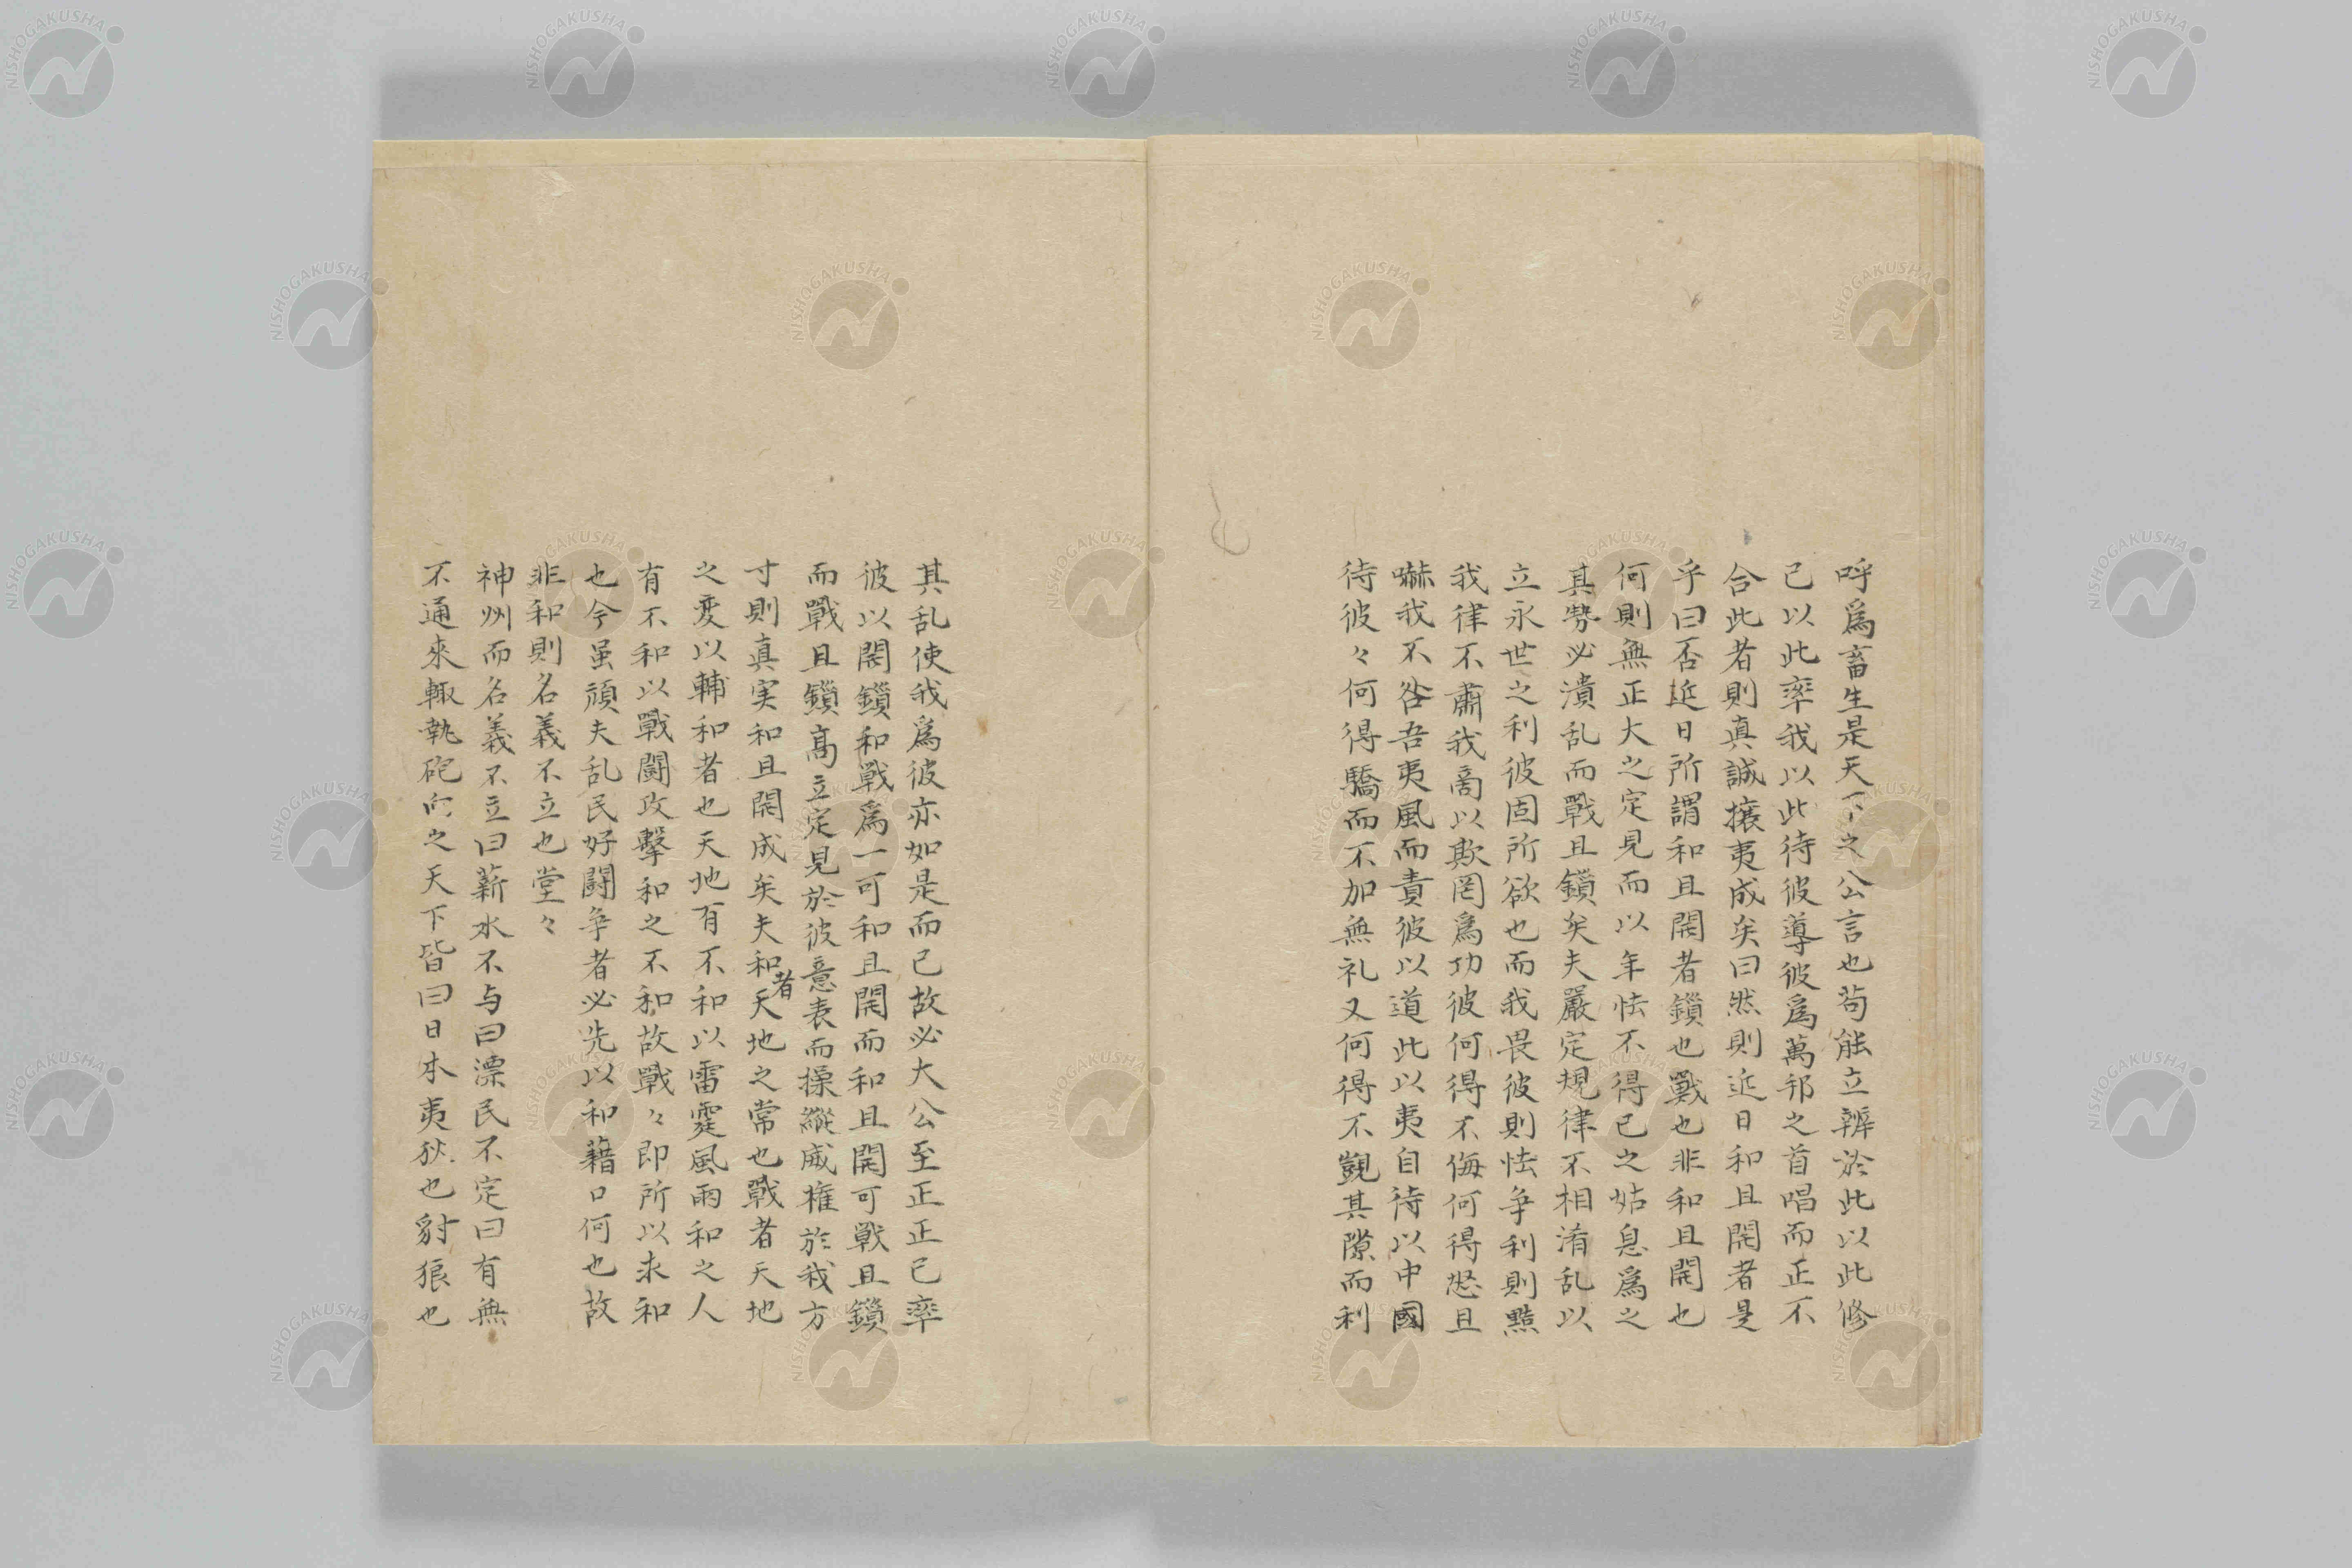 呼爲畜生是天下之公言也苟能立辨於此以此修
己以此率我以此待彼導彼爲萬邦之首唱而正不
合此者則真誠攘夷成矣曰然則近日和且開者是
乎曰否近日所謂和且開者鎖也戰也非和且開也
何則無正大之定見而以年怯不得已之姑息爲之
其勢必潰乱而戰且鎖矣夫嚴定規律不相淆乱以
立永世之利彼固所欲也而我畏彼則怯争利則黠
我律不肅我啇以欺罔爲功彼何得不侮何得不怒且
嚇我不咎吾夷風而責彼以道此以夷自待以中國
待彼々何得驕而不加無礼又何得不覬其隙而利
其乱使我爲彼亦如是而已故必大公至正正己率
彼以開鎖和戰爲一可和且開而和且開可戰且鎖
而戰且鎖高立定見於彼意表而操縱威権於我方
寸則真実和且開成矣夫和者天地之常也戰者天地
之変以輔和者也天地有不和以雷霆風雨和之人
有不和以戰闘攻擊和之不和故戰々即所以求和
也今虽頑夫乱民好闘争者必先以和藉口何也故
非和則名義不立也堂々
神州而名義不立曰薪水不与曰漂民不定曰有無
不通來輙執砲向之天下皆曰日本夷狄也豺狼也
NISHOGAKUSHA